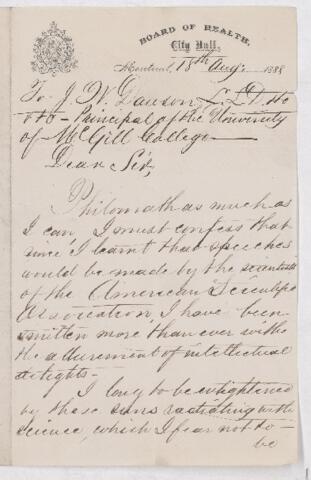 BOARD OF HEALTH,
City Hall,
Montreal, 18th Aug. 1882
To J. W. Dawson L.L.D. &c
&c &c - Principal of the University
of McGill College
Dear Sir,
Philomath as much as
I can, I must confess that
since I learnt that speeches
would be made by the scientists
of the American Scientific
Association, I have been
smitten more than ever with
the allurement of intellectual
delights -
I long to be enlightened
by those suns radiating with
science, which I fear not to
be